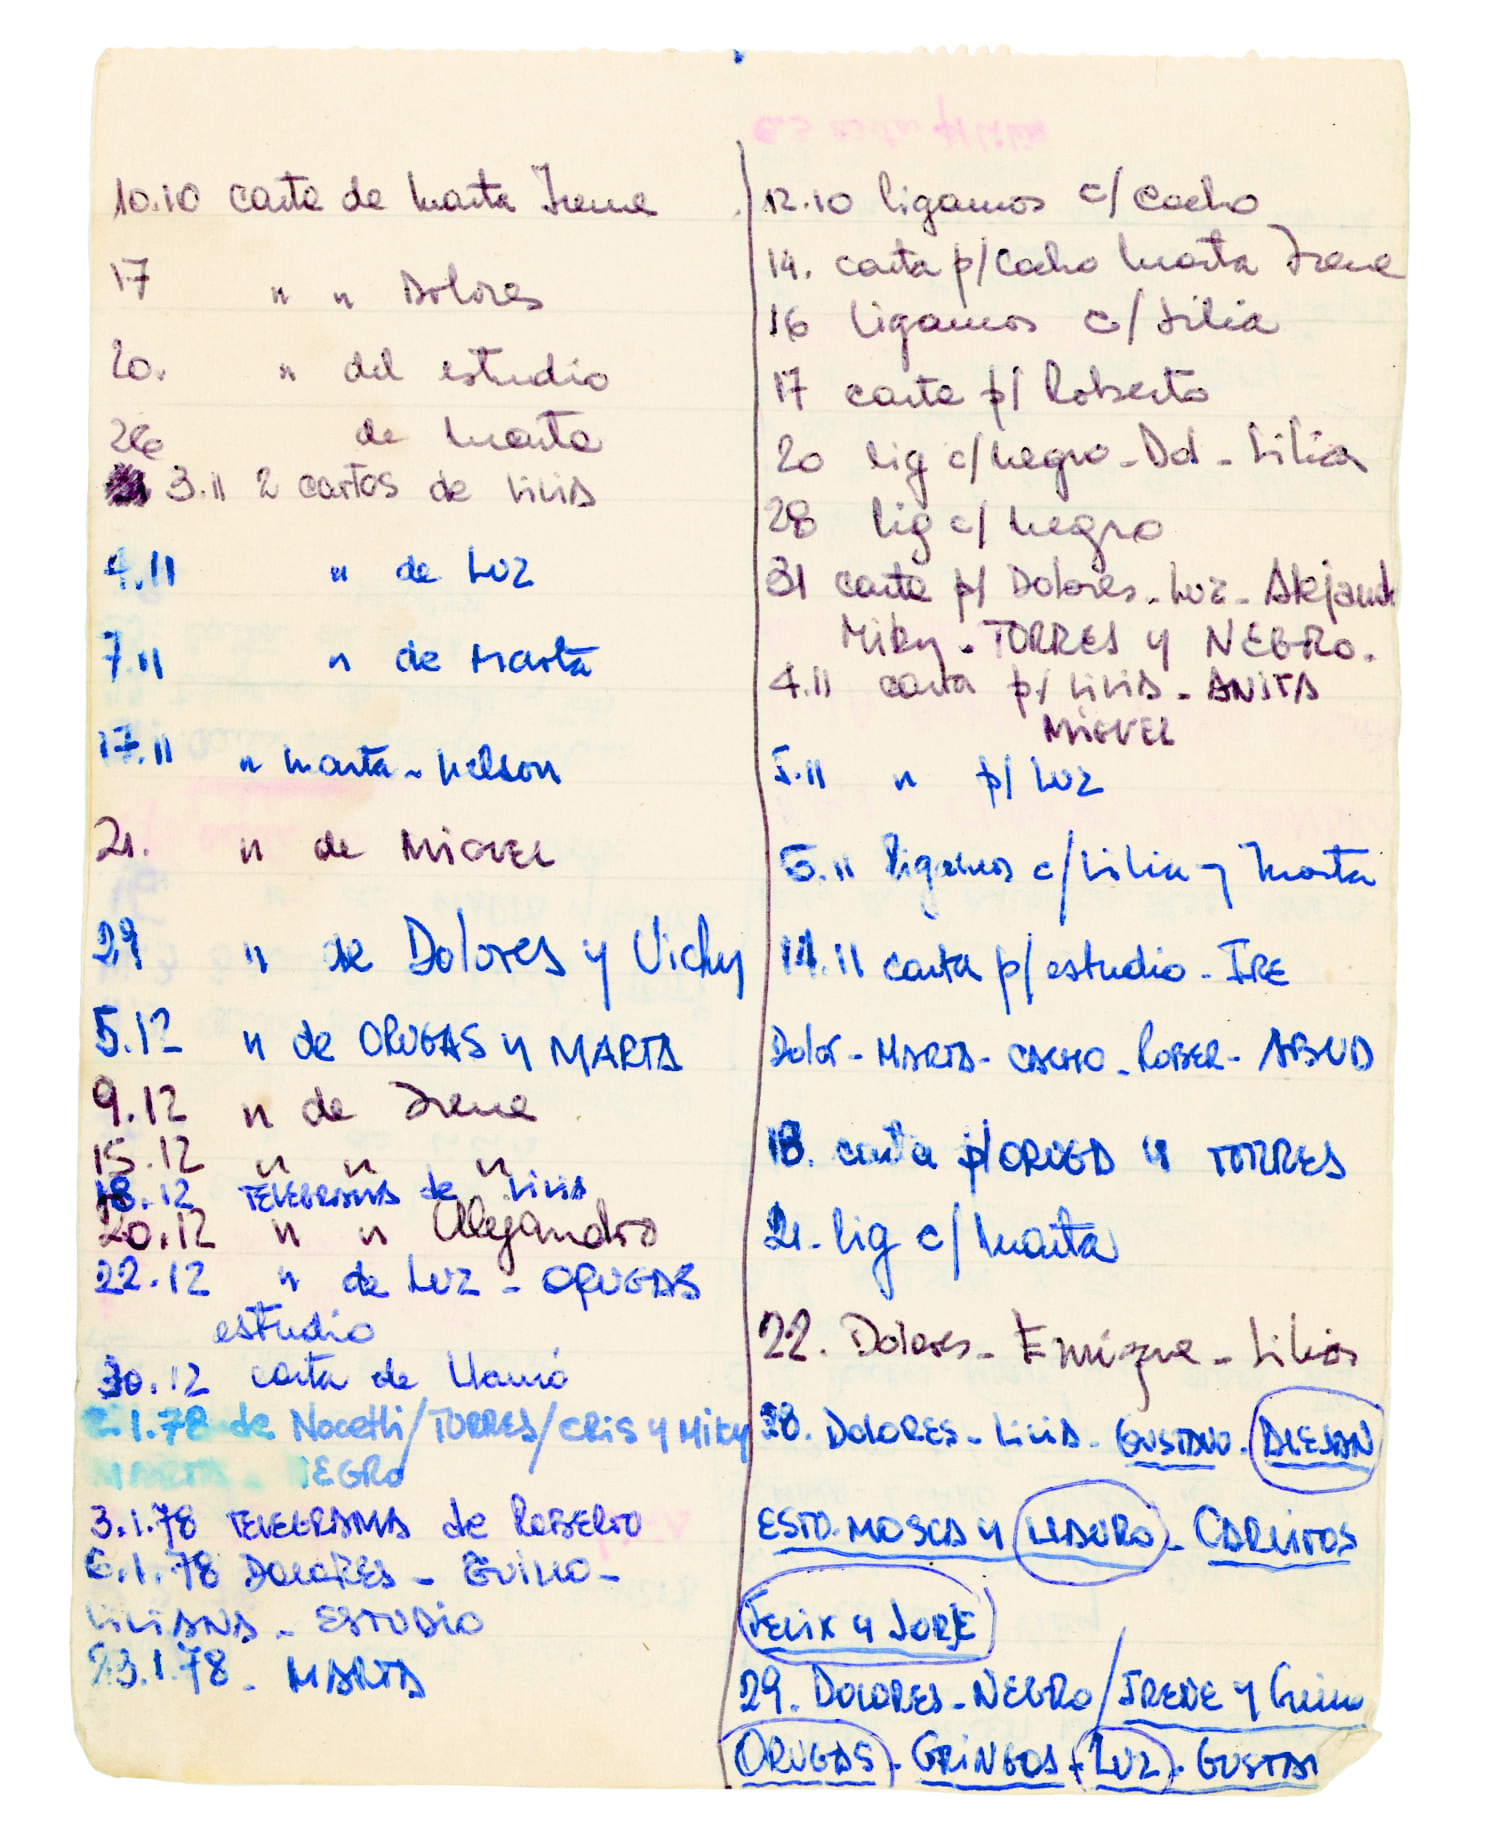 10.10 carta de Marta Irene
17 " " Dolores
20. " del estudio
26 de Marta
3.11 2 cartas de Lilia
4.11 " de Luz
7.11 " de Marta
17.11 " Marta - Nelson
21. " de MIGUEL
29 " de Dolores y Vicky
5.12 " de ORUGAS y MARTA
9.12 " de Irene
15.12 " " "
18.12 TELEGRAMA de Lilia
20.12 " " Alejandro
22.12 " de Luz - ORUGAS
estudio
30.12 carta de Mamá
2.1.78 de Nocetti/TORRES/CRIS y Miky
MARTA - NEGRO
3.1.78 TELEGRAMA de ROBERTO
6.1.78 DOLORES - GUIMO -
LILIANA - ESTUDIO
23.1.78 - MARTA
12.10 ligamos c/ Cacho
14. carta p/Cacho Marta Irene
16 ligamos c/ Lilia
17 carta p/ Roberto
20 lig c/negro - Dol - Lilia
28 lig c/ negro
31 carta p/ Dolores - Luz - Alejand
Miky - TORRES y NEGRO.
4.11 carta p/ LILIA - ANITA
MIGUEL
5.11 " p/ Luz
6.11 ligamos c/ Lilia y Marta
14.11 carta p/ estudio - IRE
Dolor - MARTA - CACHO - ROBER - ABUD
18. carta p/ORUGA y TORRES
21 - lig c/ Marta
22. Dolores - Enrique - Lilia
28. DOLORES - LILIA - GUSTAVO - ALEJAN
ESTO. MOSCA y LAURO - CARLITOS
FELIX y JORJE
29. DOLORES - NEGRO / IRENE y Guimo
ORUGAS - GRINGOS - LUZ - GUSTA